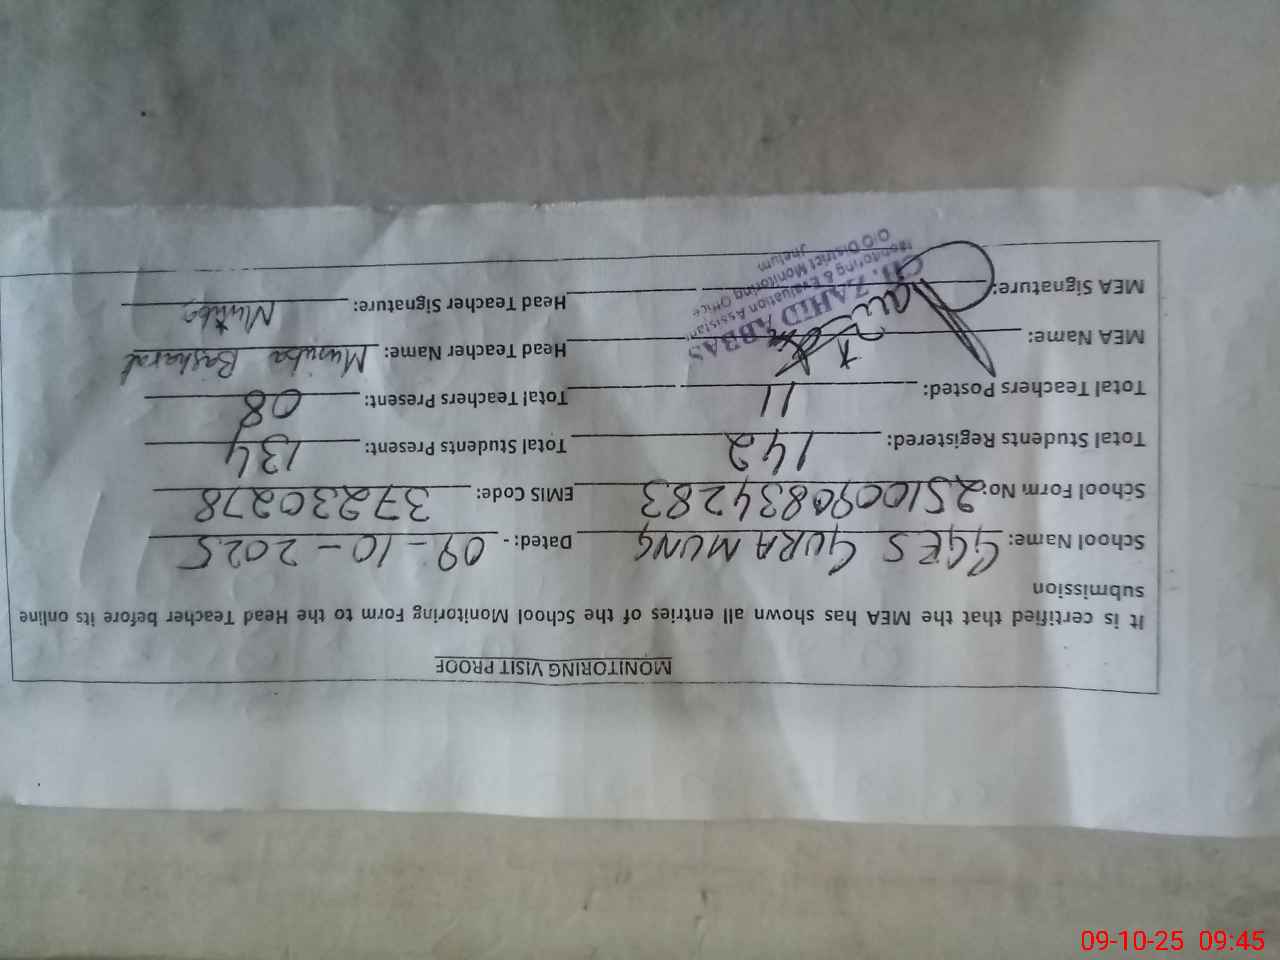 MONITORING VISIT PROOF
It is certified that the MEA has shown all entries of the School Monitoring Form to the Head Teacher before its online
submission
School Name: GGES GURA MUNG Dated: - 09-10-2025
School Form No: 2510090834283 EMIS Code: 37230278
Total Students Registered: 142 Total Students Present: 134
Total Teachers Posted: 11 Total Teachers Present: 08
MEA Name: Head Teacher Name: Muniba Basharat
MEA Signature: Head Teacher Signature: Muniba
CH. ZAHID ABBAS
Monitoring & Evaluation Assistant
O/O District Monitoring Office
Jhelum
09-10-25 09:45